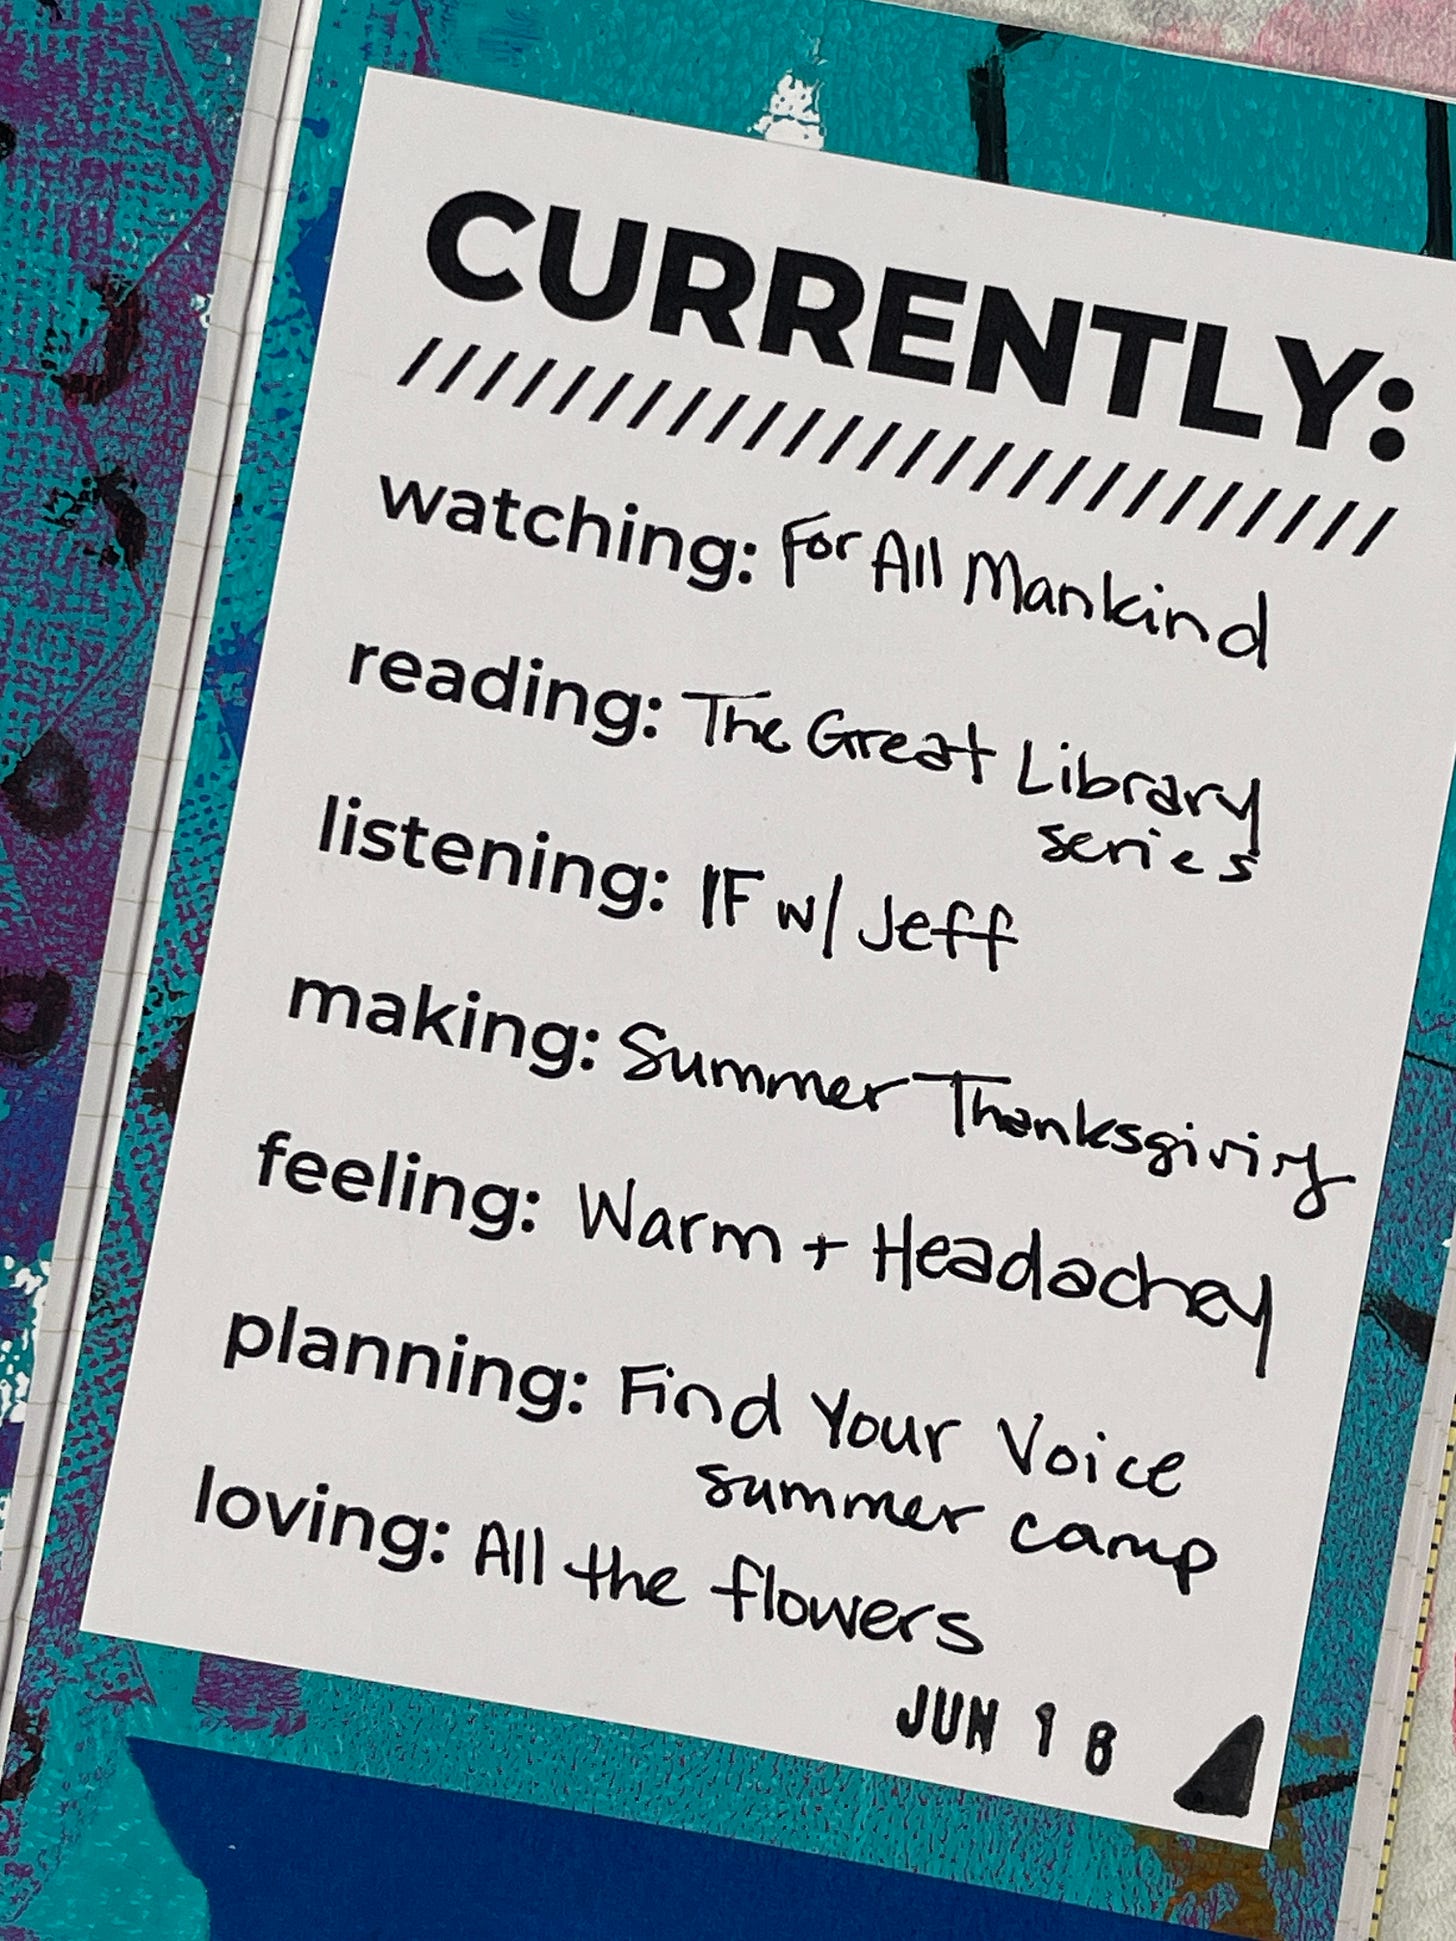 CURRENTLY:
////////////////////////////
watching: For All Mankind
reading: The Great Library
series
listening: IF w/ Jeff
making: Summer Thanksgiving
feeling: Warm + Headachey
planning: Find Your Voice
summer camp
loving: All the flowers
JUN 18